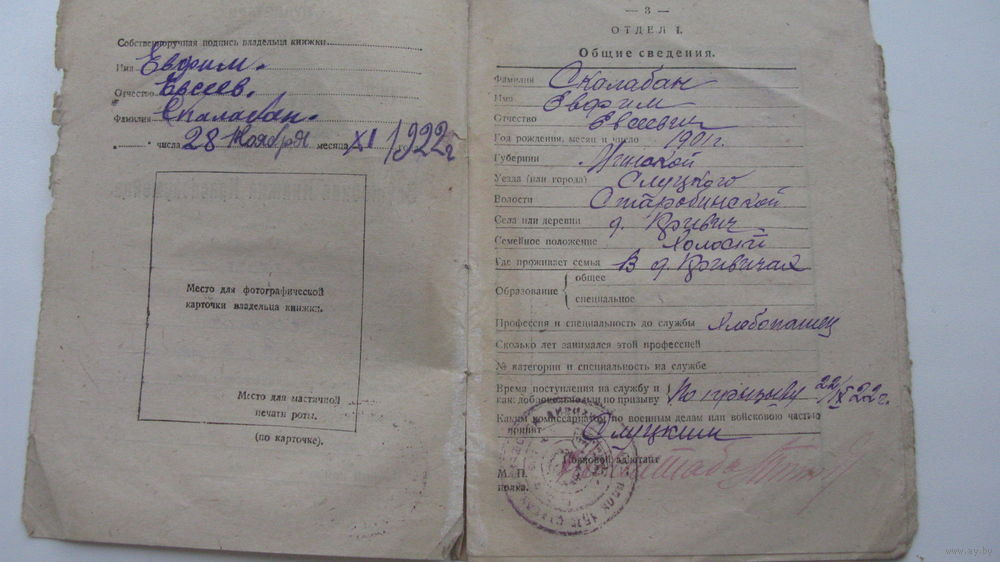 Собственноручная подпись владельца книжки
Имя Евфим.
Отчество Евсеев.
Фамилия Скалабан.
числа 28 Ноября месяца XI 1922 г
Место для фотографической
карточки владельца книжки.
Место для мастичной
печати роты.
(по карточке).
— 3 —
ОТДЕЛ I.
Общие сведения.
Фамилия Скалабан
Имя Евфим
Отчество Евсеевич
Год рождения, месяц и число 1901 г.
Губернии Минской
Уезда (или города) Слуцкого
Волости Старобинской
Села или деревни д. Кривич
Семейное положение Холостй
Где проживает семья В д. Кривичах
Образование { общее
специальное
Профессия и специальность до службы Хлебопашец
Сколько лет занимался этой профессией
№ категории и специальность на службе
Время поступления на службу и
как: добровольно или по призыву По призыву 22/X 22 г.
Каким комиссариатом по военным делам или войсковою частью
принят Слуцким
Полковой адъютант
М. П.
полка.
www.ay.by